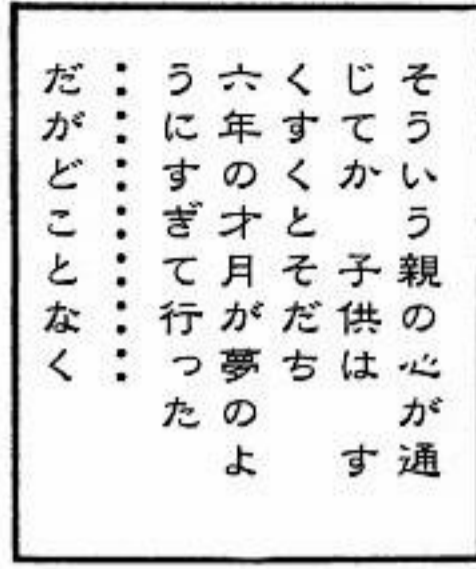 そういう親の心が通
じてか　子供は　す
くすくとそだち
六年の才月が夢のよ
うにすぎて行った
・・・・・・・・・・・・・
だがどことなく